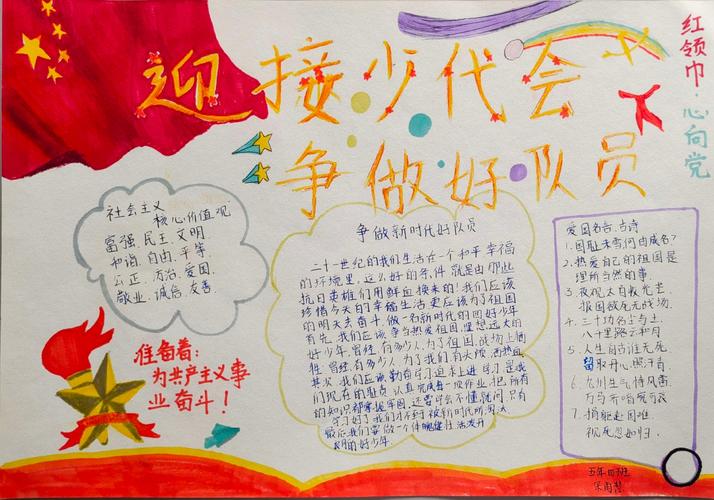 迎接少代会
争做好队员
红领巾·心向党
社会主义
核心价值观
富强 民主 文明
和谐 自由 平等
公正 法治 爱国
敬业 诚信 友善
准备着:
为共产主义事
业奋斗!
争做新时代好队员
二十一世纪的我们生活在一个和平幸福
的环境里,这么好的条件就是由那些
抗日英雄们用鲜血换来的!我们应该
珍惜今天的幸福生活更应该为了祖国
的明天去奋斗,做一名新时代的四好少年
首先,我们应该争当热爱祖国,坚想远大的
好少年,曾经,有多少人为了祖国,战场上牺
牲,曾经,有多少人为了我们有大烦,洒热血
其次,我们应该勤奋学习追求上进,学习是我
们现在的职责,认真完成每一项作业,把所有
的知识都掌握牢固,还要学会不懂就问,只有
学习好了我们才不到被新时代所淘汰
最后我们要做一个体魄健壮活泼开
朗的好少年.
爱国名言、古诗
1.国耻未雪何由成名?
2.热爱自己的祖国是
理所当然的事.
3.夜视太白收光芒,
报国欲死无战场.
4.三十功名尘与土,
八千里路云和月
5.人生自古谁无死
留取丹心照汗青
6.九州生气恃风雷
万马齐喑究可哀
7.捐躯赴国难
视死忽如归.
五年四班